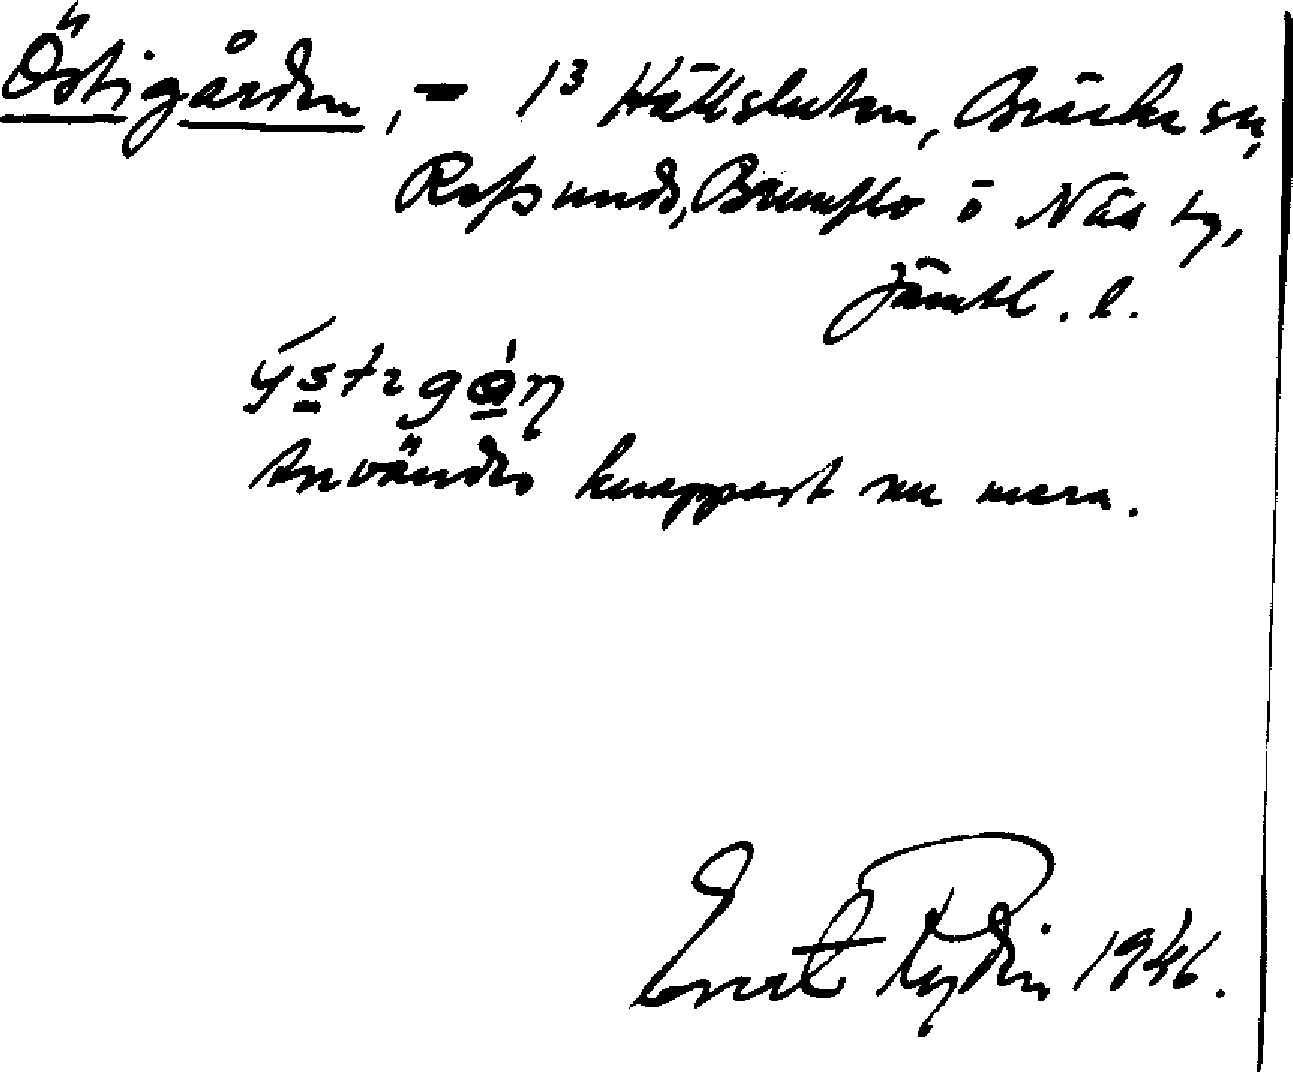 Östigården, - 1³ Hällsluten, Bräcke sn,
Refsunds, Brunflo o Näs tg,
Jämtl. l.
Användes knappast nu mera.
Ernst Rydin 1946.